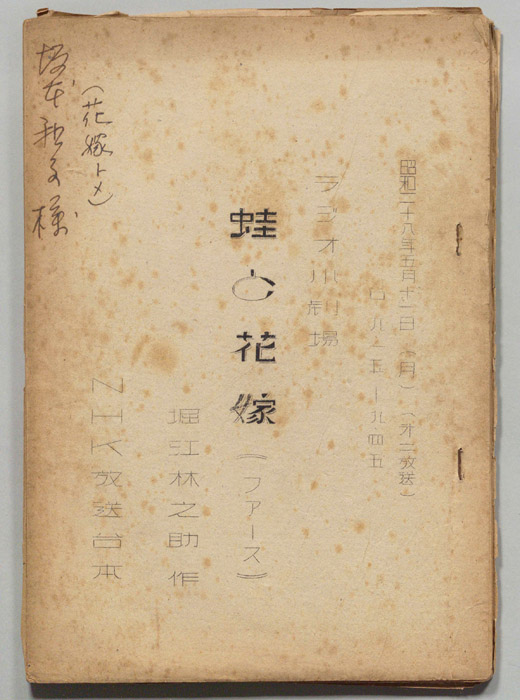 昭和二十八年五月十一日(月)(オ二放送)
九・一五―九・四五
ラジオ小劇場
蛙と花嫁
(ファース)
堀江林之助 作
NHK放送台本
(花嫁トメ)
様